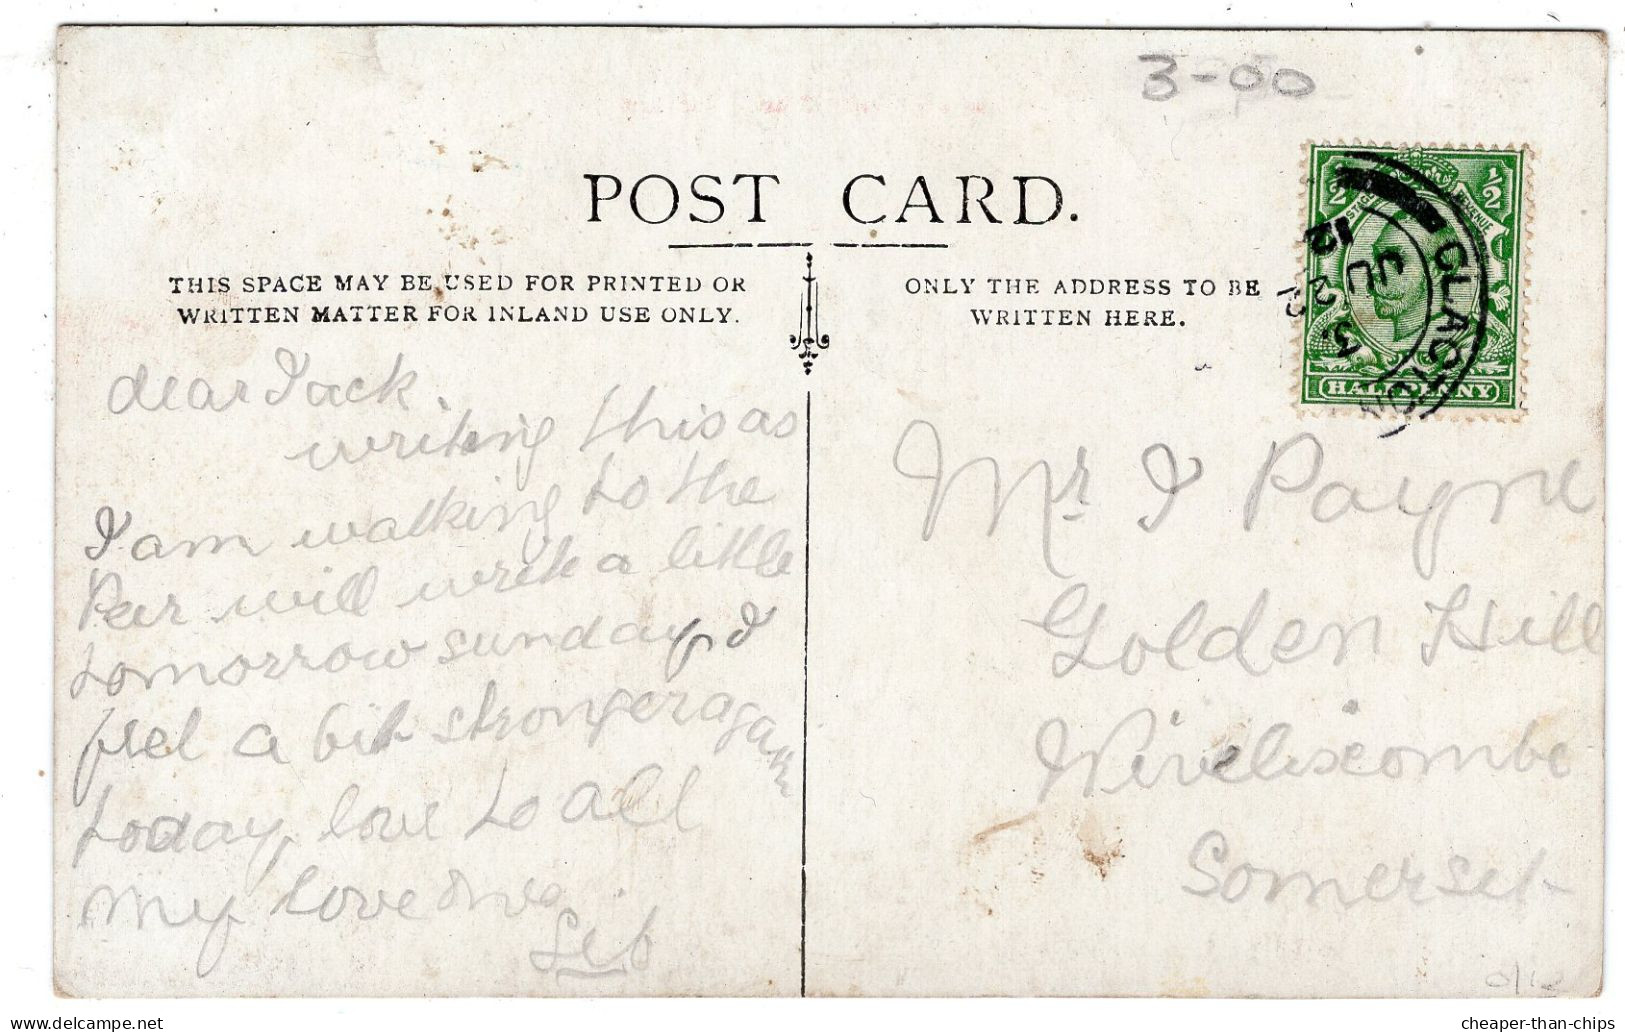 3-00
POST CARD.
THIS SPACE MAY BE USED FOR PRINTED OR
WRITTEN MATTER FOR INLAND USE ONLY.
ONLY THE ADDRESS TO BE
WRITTEN HERE.
1/2 1/2
POSTAGE REVENUE
HALFPENNY
CLACTON
JU
12
dear Jack.
writing this as
I am walking to the
Peir will write a little
tomorrow sunday, I
feel a bit stronger again
today, love to all
my love
Mr J Payne
Golden Hill
Wiveliscombe
Somerset
0/12
cheaper-than-chips